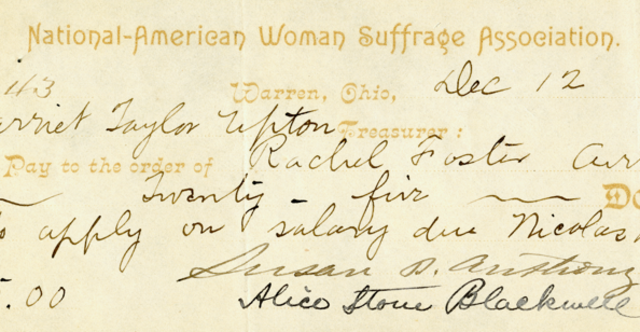 National-American Woman Suffrage Association.
Warren, Ohio, Dec 12
Taylor Upton Treasurer:
Pay to the order of Rachel Foster
Twenty-five
apply on salary due Nicolas
Susan B. Anthony
.00 Alice Stone Blackwell